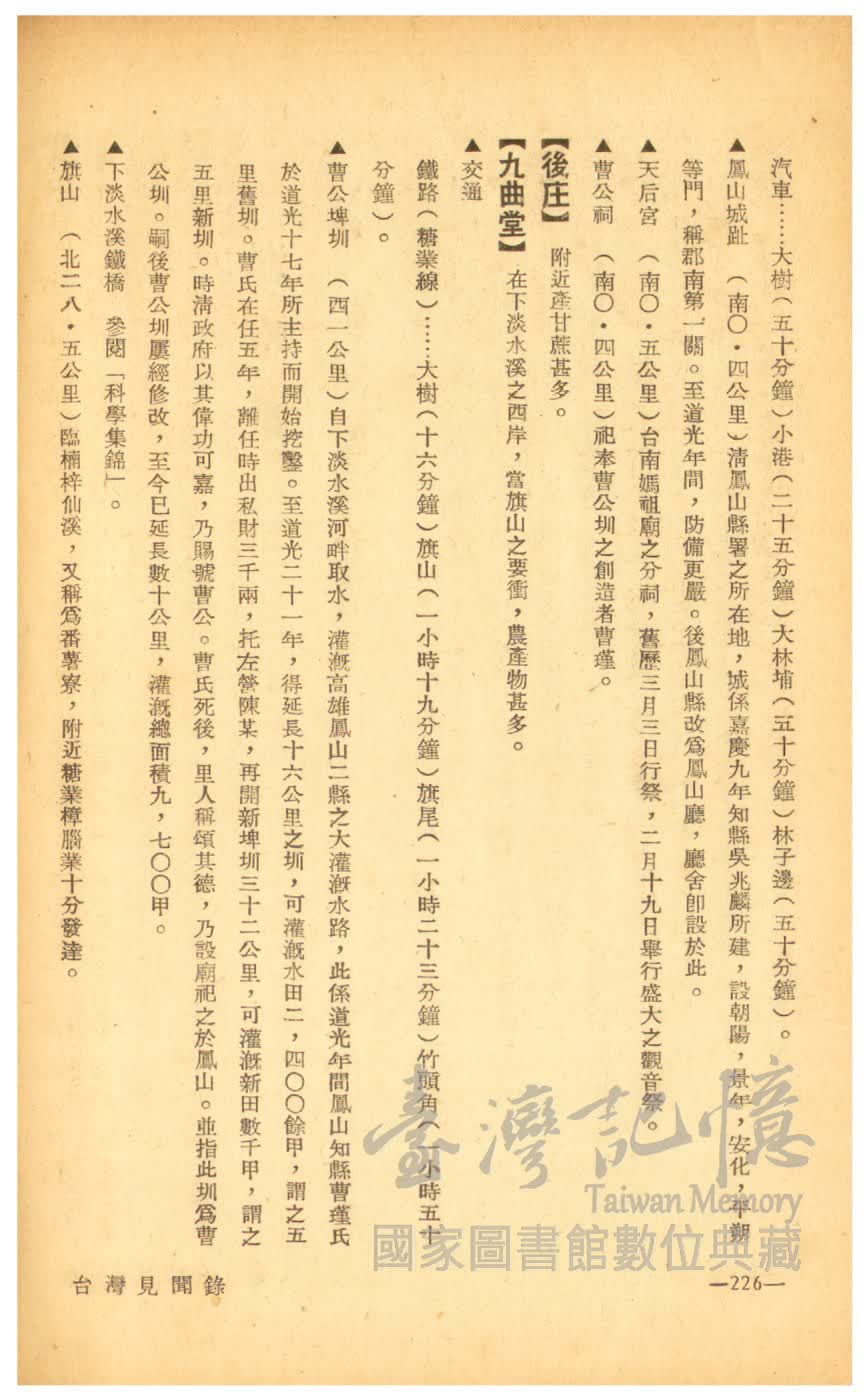 汽車……大樹(五十分鐘)小港(二十五分鐘)大林埔(五十分鐘)林子邊(五十分鐘)。
▲鳳山城趾 (南〇・四公里)淸鳳山縣署之所在地，城係嘉慶九年知縣吳兆麟所建，設朝陽，景年，安化，平朔
等門，稱郡南第一關。至道光年間，防備更嚴。後鳳山縣改爲鳳山廳，廳舍卽設於此。
▲天后宮 (南〇・五公里)台南媽祖廟之分祠，舊歷三月三日行祭，二月十九日舉行盛大之觀音祭。
▲曹公祠 (南〇・四公里)祀奉曹公圳之創造者曹瑾。
【後庄】 附近產甘蔗甚多。
【九曲堂】 在下淡水溪之西岸，當旗山之要衝，農產物甚多。
▲交通
鐵路(糖業線)……大樹(十六分鐘)旗山(一小時十九分鐘)旗尾(一小時二十三分鐘)竹頭角(一小時五十
分鐘)。
▲曹公埤圳 (西一公里)自下淡水溪河畔取水，灌漑高雄鳳山二縣之大灌漑水路，此係道光年間鳳山知縣曹瑾氏
於道光十七年所主持而開始挖鑿。至道光二十一年，得延長十六公里之圳，可灌漑水田二，四〇〇餘甲，謂之五
里舊圳。曹氏在任五年，離任時出私財三千兩，托左營陳某，再開新埤圳三十二公里，可灌漑新田數千甲，謂之
五里新圳。時淸政府以其偉功可嘉，乃賜號曹公。曹氏死後，里人稱頌其德，乃設廟祀之於鳳山。並指此圳爲曹
公圳。嗣後曹公圳屢經修改，至今已延長數十公里，灌漑總面積九，七〇〇甲。
▲下淡水溪鐵橋 參閱「科學集錦」。
▲旗山 (北二八・五公里)臨楠梓仙溪，又稱爲番薯寮，附近糖業樟腦業十分發達。
臺灣記憶
Taiwan Memory
國家圖書館數位典藏
台灣見聞錄
—226—